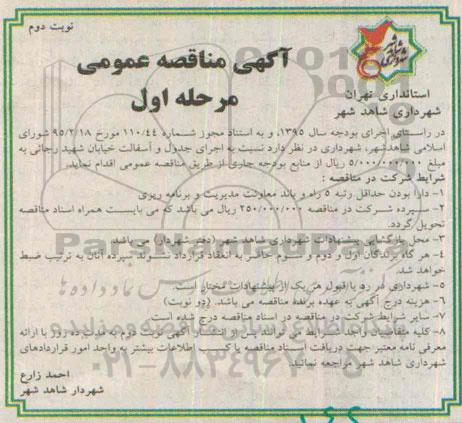 نوبت دوم
آگهی مناقصه عمومی
مرحله اول
استانداری تهران
شهرداری شاهد شهر
در راستای اجرای بودجه سال ۱۳۹۵، و به استناد مجوز شماره ۱۱۰/۴۴ مورخ ۹۵/۲/۱۸ شورای
اسلامی شاهدشهر، شهرداری در نظر دارد نسبت به اجرای جدول و آسفالت خیابان شهید رجائی به
مبلغ ۵/۰۰۰/۰۰۰/۰۰۰ ریال از منابع بودجه جاری از طریق مناقصه عمومی اقدام نماید.
شرایط شرکت در مناقصه :
۱- دارا بودن حداقل رتبه ۵ راه و باند معاونت مدیریت و برنامه ریزی
۲- سپرده شرکت در مناقصه ۲۵۰/۰۰۰/۰۰۰ ریال می باشد که می بایست همراه اسناد مناقصه
تحویل گردد.
۳- محل بازگشایی پیشنهادات شهرداری شاهد شهر (دفتر شهردار) می باشد
۴- هر گاه برندگان اول و دوم و سوم حاضر به انعقاد قرارداد نشوند سپرده آنان به ترتیب ضبط
خواهد شد.
۵- شهرداری در رد یا قبول هر یک از پیشنهادات مختار است.
۶- هزینه درج آگهی به عهده برنده مناقصه می باشد. (دو نوبت)
۷- سایر شرایط شرکت در مناقصه در اسناد مناقصه درج شده است
۸- کلیه متقاضیان واجد شرایط می توانند پس از انتشار آگهی نوبت دوم به مدت ده روز با ارائه
معرفی نامه معتبر جهت دریافت اسناد مناقصه یا کسب اطلاعات بیشتر به واحد امور قراردادهای
شهرداری شاهد شهر مراجعه نمائید.
احمد زارع
شهردار شاهد شهر
ParsNamadData
۰۲۱-۸۸۳۴۹۶۷۰-۵